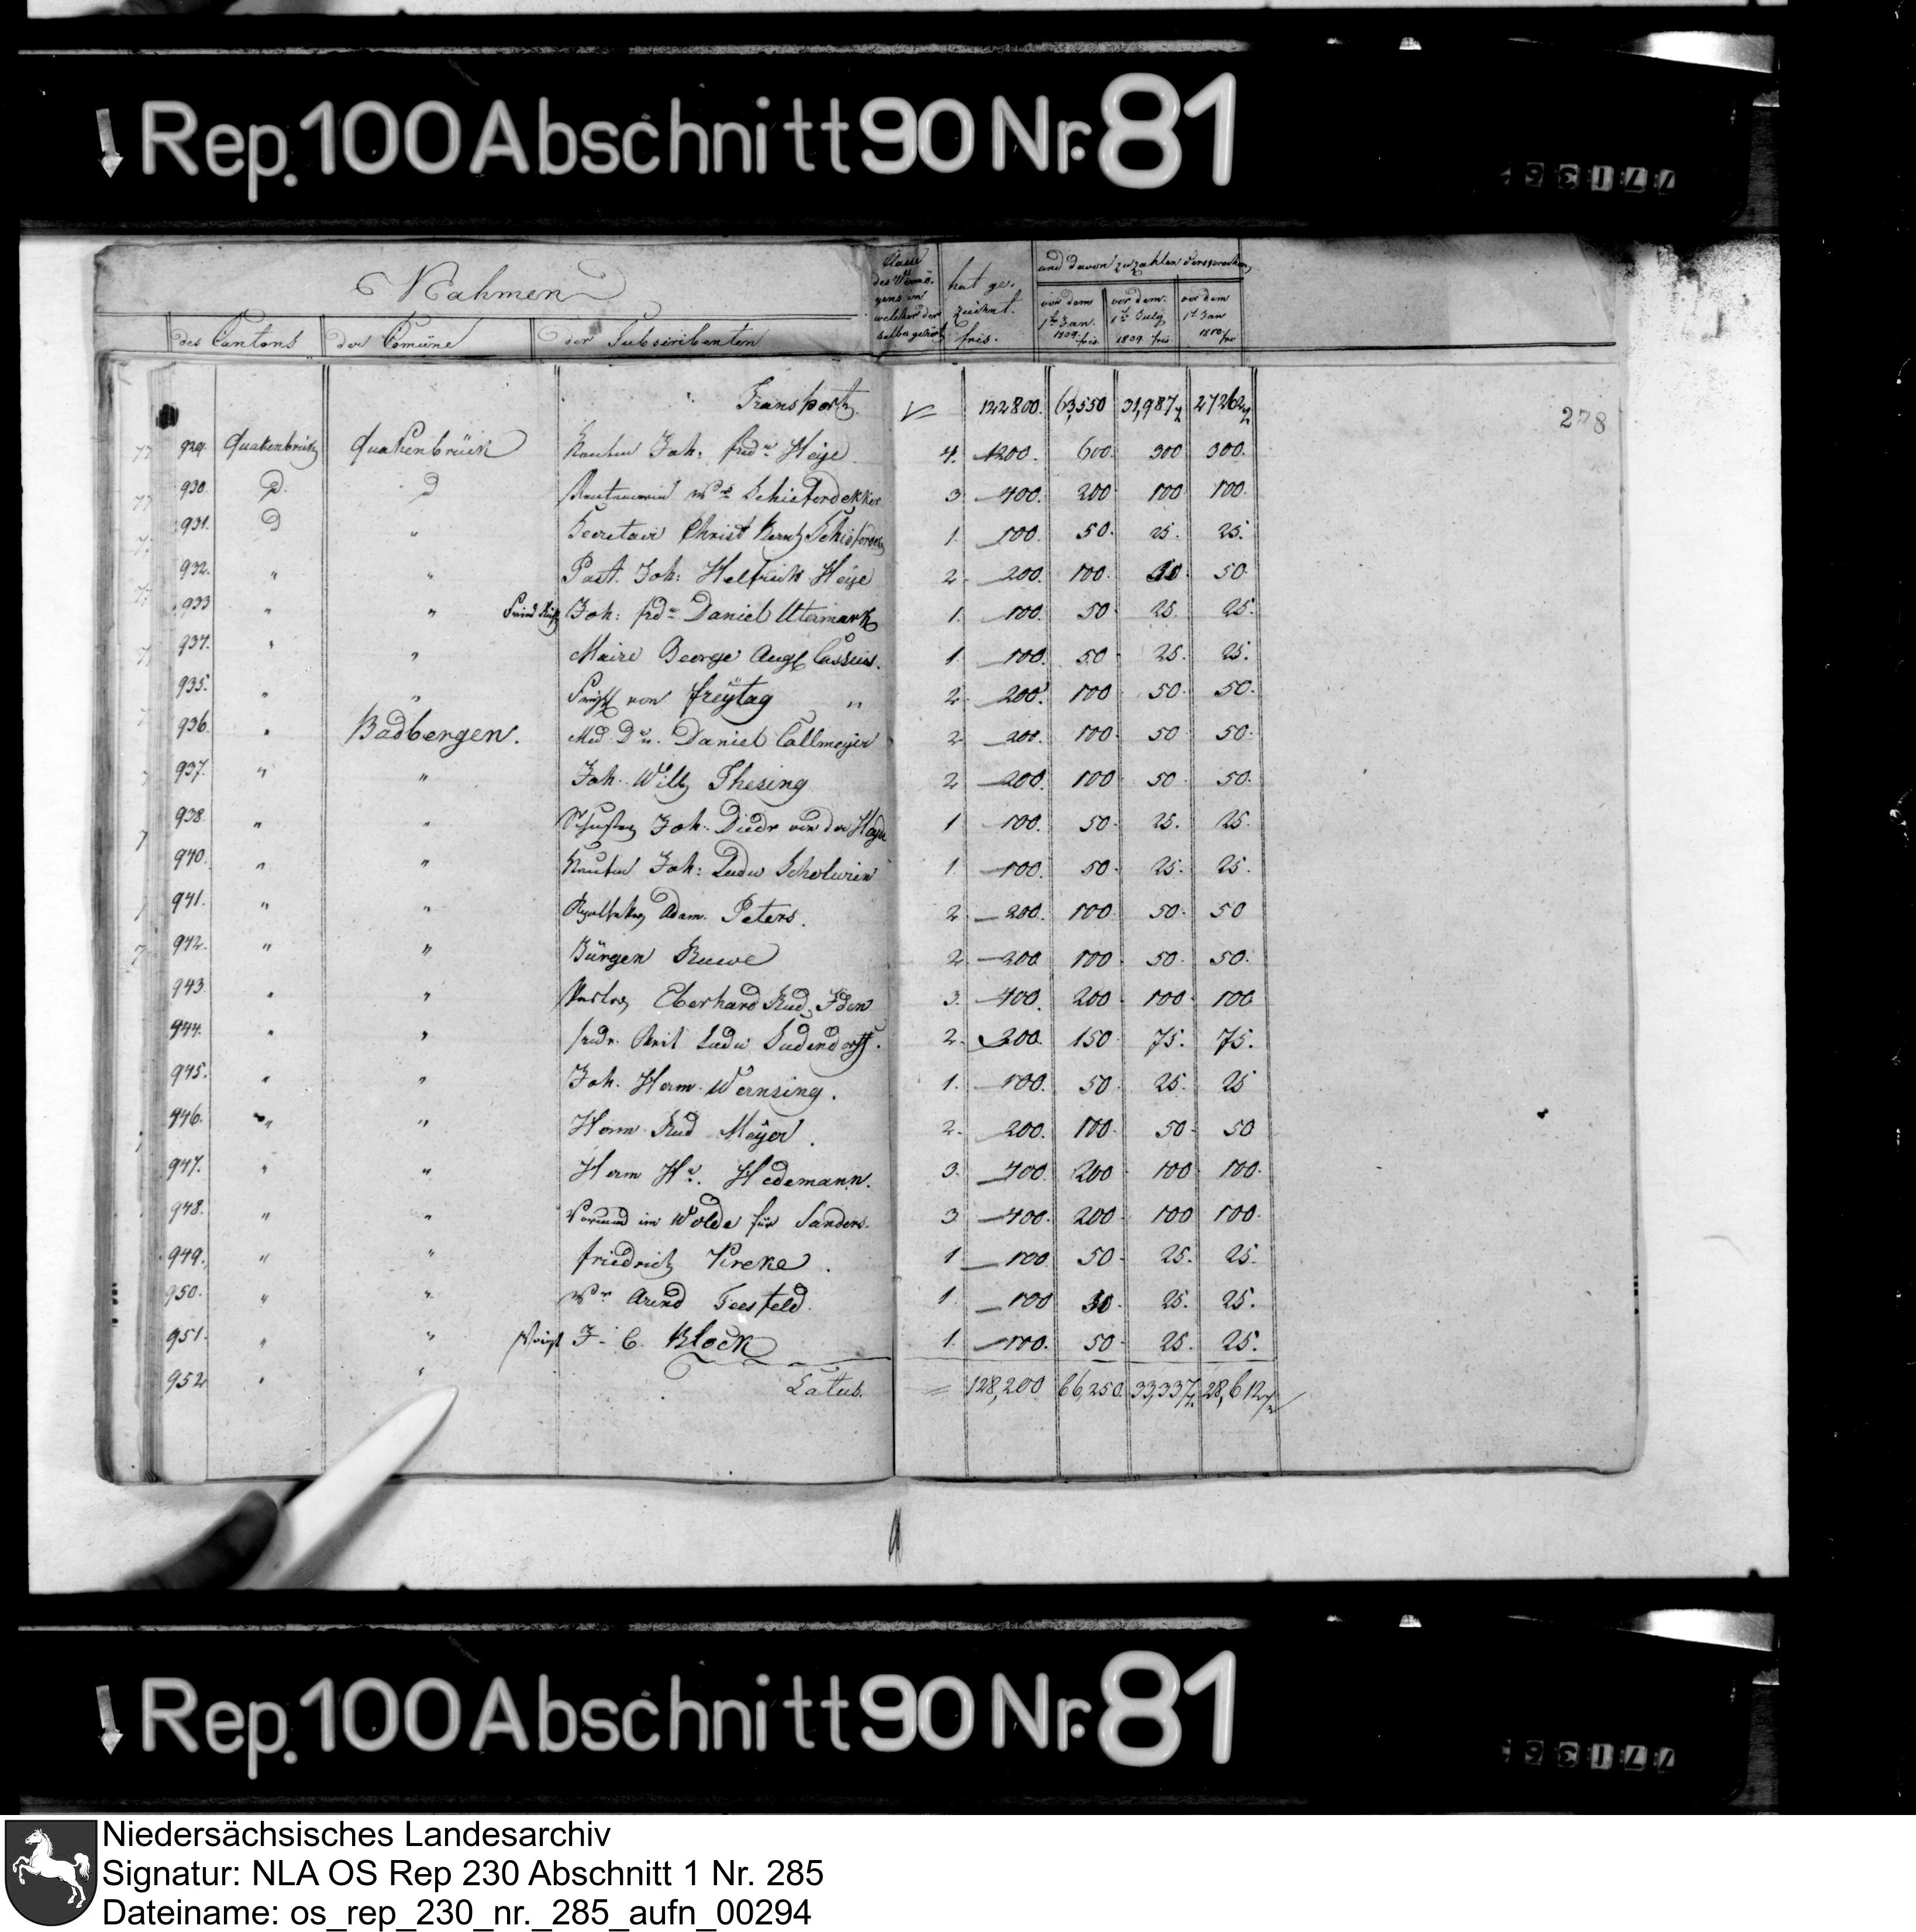 Rep. 100 Abschnitt 90 Nr. 81
Nahmen
des Cantons der Comüne der Subscribenten
Classe des Vermögens in welcher derselbe gehört
hat gezeichnet. frcs.
und davon zu zahlen versprochen
vor dem 1t Jan. 1809. frcs
vor dem 1t July 1809 frcs
vor dem 1t Jan 1810 frc
278
Transport 122800. 63,550 31,987½ 27262½
929. Quakenbrück Quakenbrück Joh: Heye 4. 1200. 600. 300 300.
930. D. D Schieferdekker 3. 400. 200 100 100.
931. D " Secretair Christ Schieferdek 1. 100. 50. 25. 25.
932. " " Past. Joh: Helfrich Heye 2. 200. 100. 50. 50.
933 " " Joh: frdr Daniel Utermark 1. 100. 50 25. 25.
934. " " Maire George Aug Cassius. 1. 100. 50. 25. 25.
935. " " von freÿtag " 2. 200. 100 50. 50.
936. " Badbergen. Med. Dr. Daniel Collmeyer 2. 200. 100. 50 50.
937. " " Joh. Wilh Thesing 2 200. 100 50. 50.
938. " " Joh. Diedr von der Hayde 1 100. 50. 25. 25.
940. " " Joh: Ludw Scholwien 1. 100. 50. 25. 25.
941. " " Apotheker Adam. Peters. 2. 200. 100. 50. 50
942. " " Jürgen Ruwe 2. 200 100 50. 50.
943. " " Pastor Eberhard Rud. Iden 3. 400. 200 100. 100
944. " " Ludw Ludendorff. 2. 300. 150 75. 75.
945. " " Joh. Herm. Wernsing. 1. 100. 50. 25. 25
946. " " Herm. Rud Meÿer. 2. 200. 100. 50. 50
947. " " Herm Hr. Hedemann. 3. 400. 200 100. 100.
948. " " Vormund im Wolde für Sanders. 3 400. 200. 100 100.
949. " " friedrich Kreke. 1 100 50. 25. 25.
950. " " Wr Arend Feesfeld. 1. 100 50. 25. 25.
951. " " Voigt J. C. Block 1. 100. 50. 25. 25.
952 " " Latus. 128,200 66,250. 33,337½ 28,612½
Rep. 100 Abschnitt 90 Nr. 81
Niedersächsisches Landesarchiv
Signatur: NLA OS Rep 230 Abschnitt 1 Nr. 285
Dateiname: os_rep_230_nr._285_aufn_00294